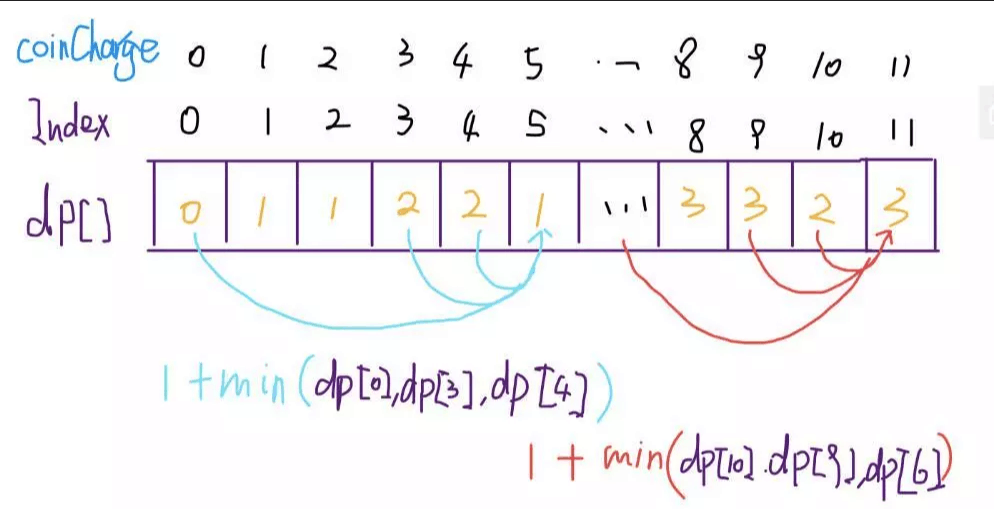 coinCharge 0 1 2 3 4 5 ... 8 9 10 11
Index 0 1 2 3 4 5 ... 8 9 10 11
dp[] 0 1 1 2 2 1 ... 3 3 2 3
1+min(dp[0],dp[3],dp[4])
1+min(dp[10].dp[9],dp[6])